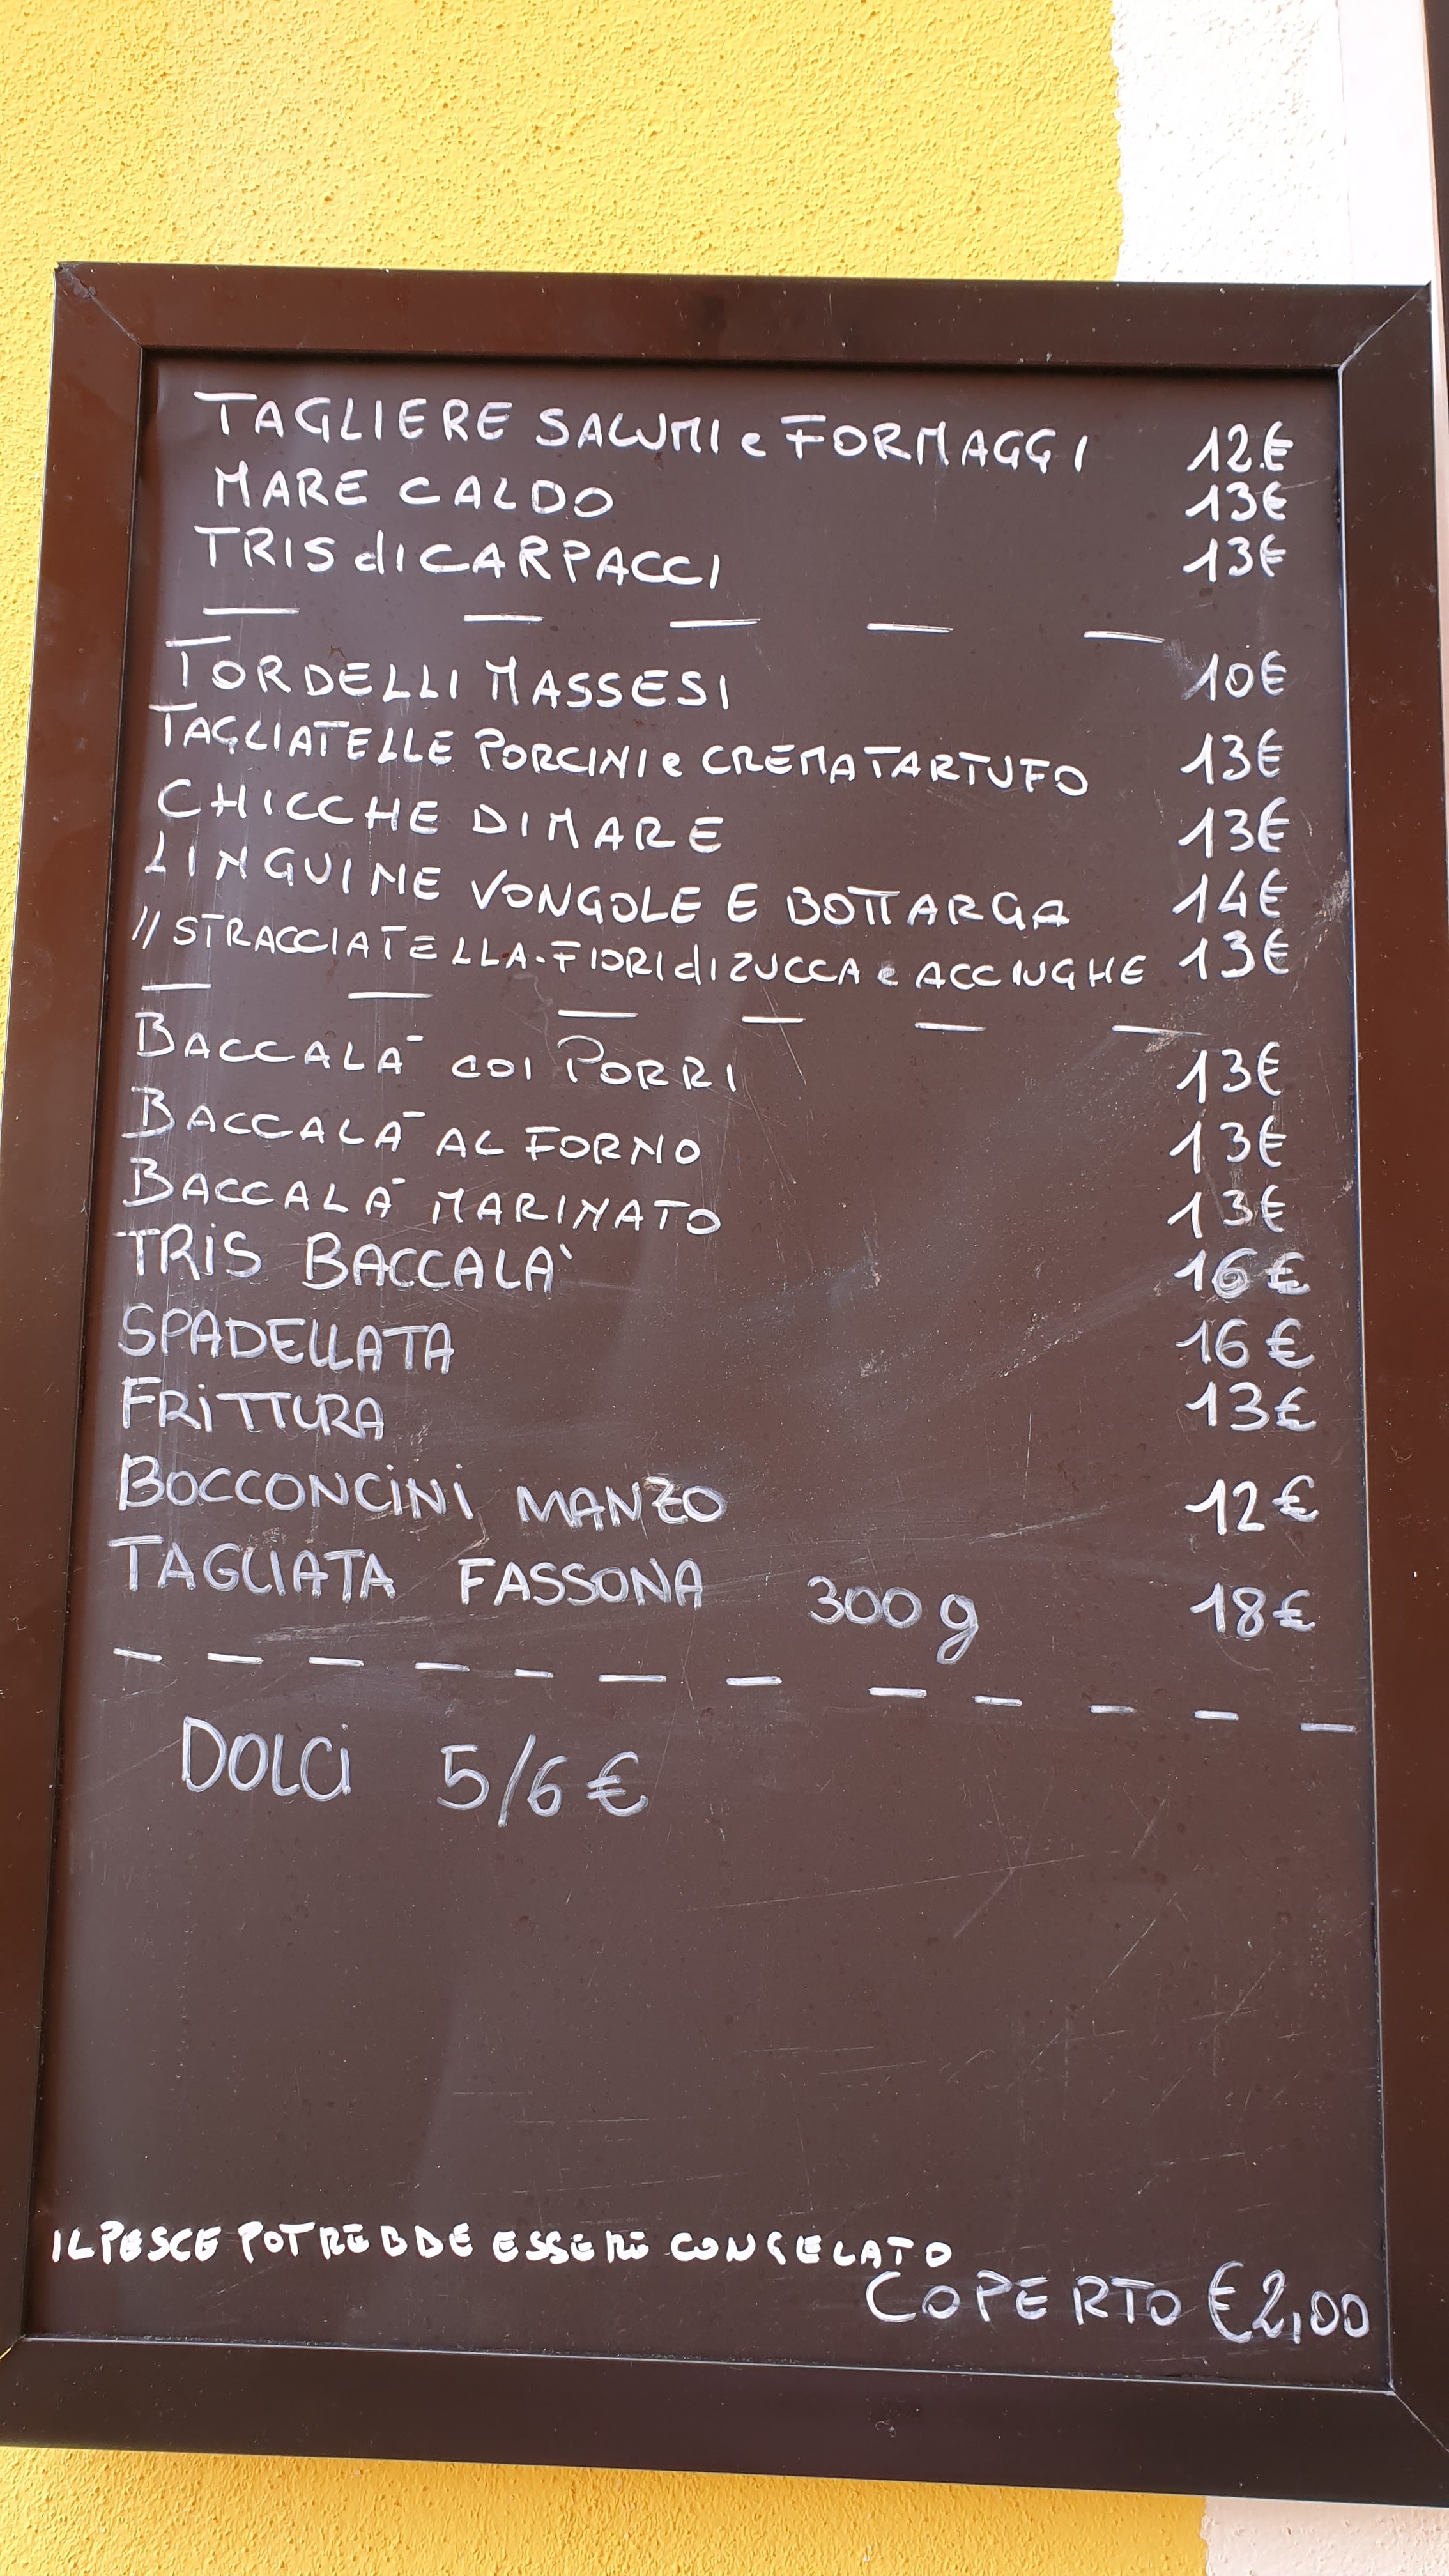 TAGLIERE SALUMI e FORMAGGI 12€
MARE CALDO 13€
TRIS di CARPACCI 13€
TORDELLI MASSESI 10€
TAGLIATELLE PORCINI e CREMA TARTUFO 13€
CHICCHE DI MARE 13€
LINGUINE VONGOLE E BOTTARGA 14€
// STRACCIATELLA-FIORI di ZUCCA e ACCIUGHE 13€
BACCALÀ COI PORRI 13€
BACCALÀ AL FORNO 13€
BACCALÀ MARINATO 13€
TRIS BACCALÀ 16€
SPADELLATA 16€
FRITTURA 13€
BOCCONCINI MANZO 12€
TAGLIATA FASSONA 300g 18€
DOLCI 5/6€
IL PESCE POTREBBE ESSERE CONGELATO
COPERTO €2,00